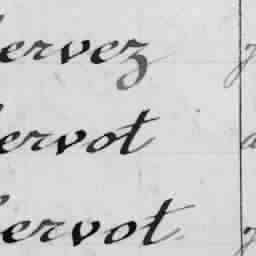 ervez
ervot
ervot